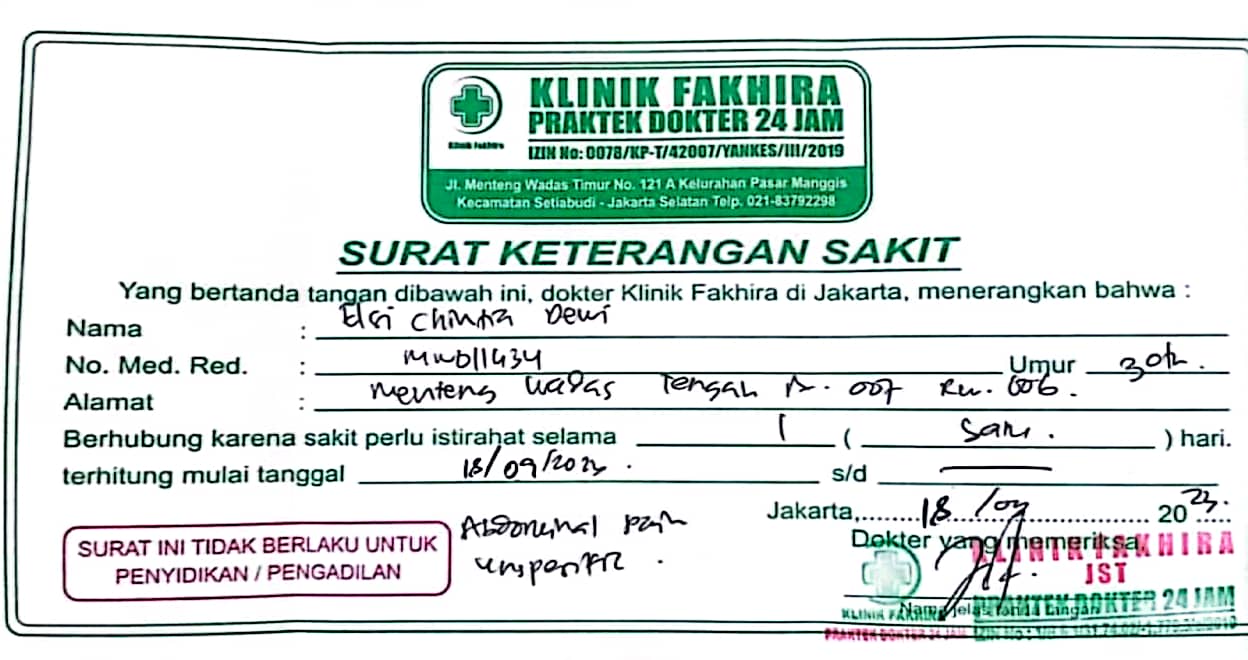 KLINIK FAKHIRA
PRAKTEK DOKTER 24 JAM
Klinik Fakhira
IZIN No: 0078/KP-T/42007/YANKES/III/2019
Jl. Menteng Wadas Timur No. 121 A Kelurahan Pasar Manggis
Kecamatan Setiabudi - Jakarta Selatan Telp. 021-83792298
SURAT KETERANGAN SAKIT
Yang bertanda tangan dibawah ini, dokter Klinik Fakhira di Jakarta, menerangkan bahwa :
Nama : Elsi Chintia Dewi
No. Med. Red. : Umur 30th.
Alamat : Menteng Wadas Tengah Rt. 007 Rw. 006.
Berhubung karena sakit perlu istirahat selama 1 ( Satu . ) hari.
terhitung mulai tanggal 18/09/2023 . s/d —
Jakarta, 18 /09 2023.
SURAT INI TIDAK BERLAKU UNTUK
PENYIDIKAN / PENGADILAN
Abdominal pain
Dokter yang memeriksa
KLINIK FAKHIRA
JST
Nama jelas tanda tangan
PRAKTEK DOKTER 24 JAM
KLINIK FAKHIRA
PRAKTEK DOKTER 24 JAM